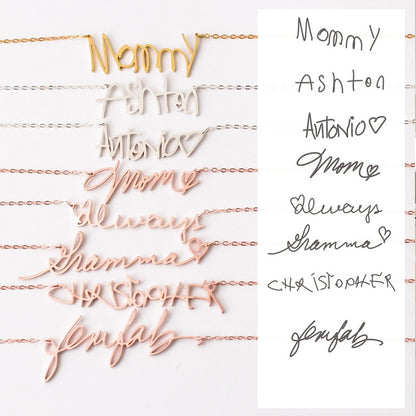 Mommy
Ashton
Antonio♡
Mom
always
Gramma♡
CHRISTOPHER
Jenifab
Mommy
Ashton
Antonio♡
Mom
always
Gramma♡
CHRISTOPHER
Jenifab